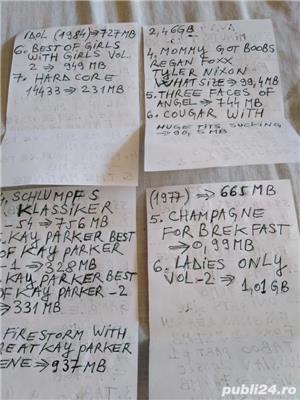 IDOL (1984) ⇒ 727 MB
6. BEST OF GIRLS
WITH GIRLS VOL.
2 ⇒ 949 MB
7. HARDCORE
14433 ⇒ 231 MB
2,46GB
4. MOMMY GOT BOOBS
REGAN FOXX
TYLER NIXON
WHAT SIZE ⇒ 99,4MB
5. THREE FACES OF
ANGEL ⇒ 744 MB
6. COUGAR WITH
HUGE TITS SUCKING
⇒ 90,5 MB
SCHLUMPFS
KLASSIKER
-54 ⇒ 756 MB
KAY PARKER BEST
OF KAY PARKER
-1 ⇒ 328 MB
KAY PARKER BEST
OF KAY PARKER -2
⇒ 331 MB
FIRESTORM WITH
KAY PARKER
937 MB
(1977) ⇒ 665 MB
5. CHAMPAGNE
FOR BREKFAST
⇒ 0,99 MB
6. LADIES ONLY
VOL-2 ⇒ 1,01GB
publi24.ro